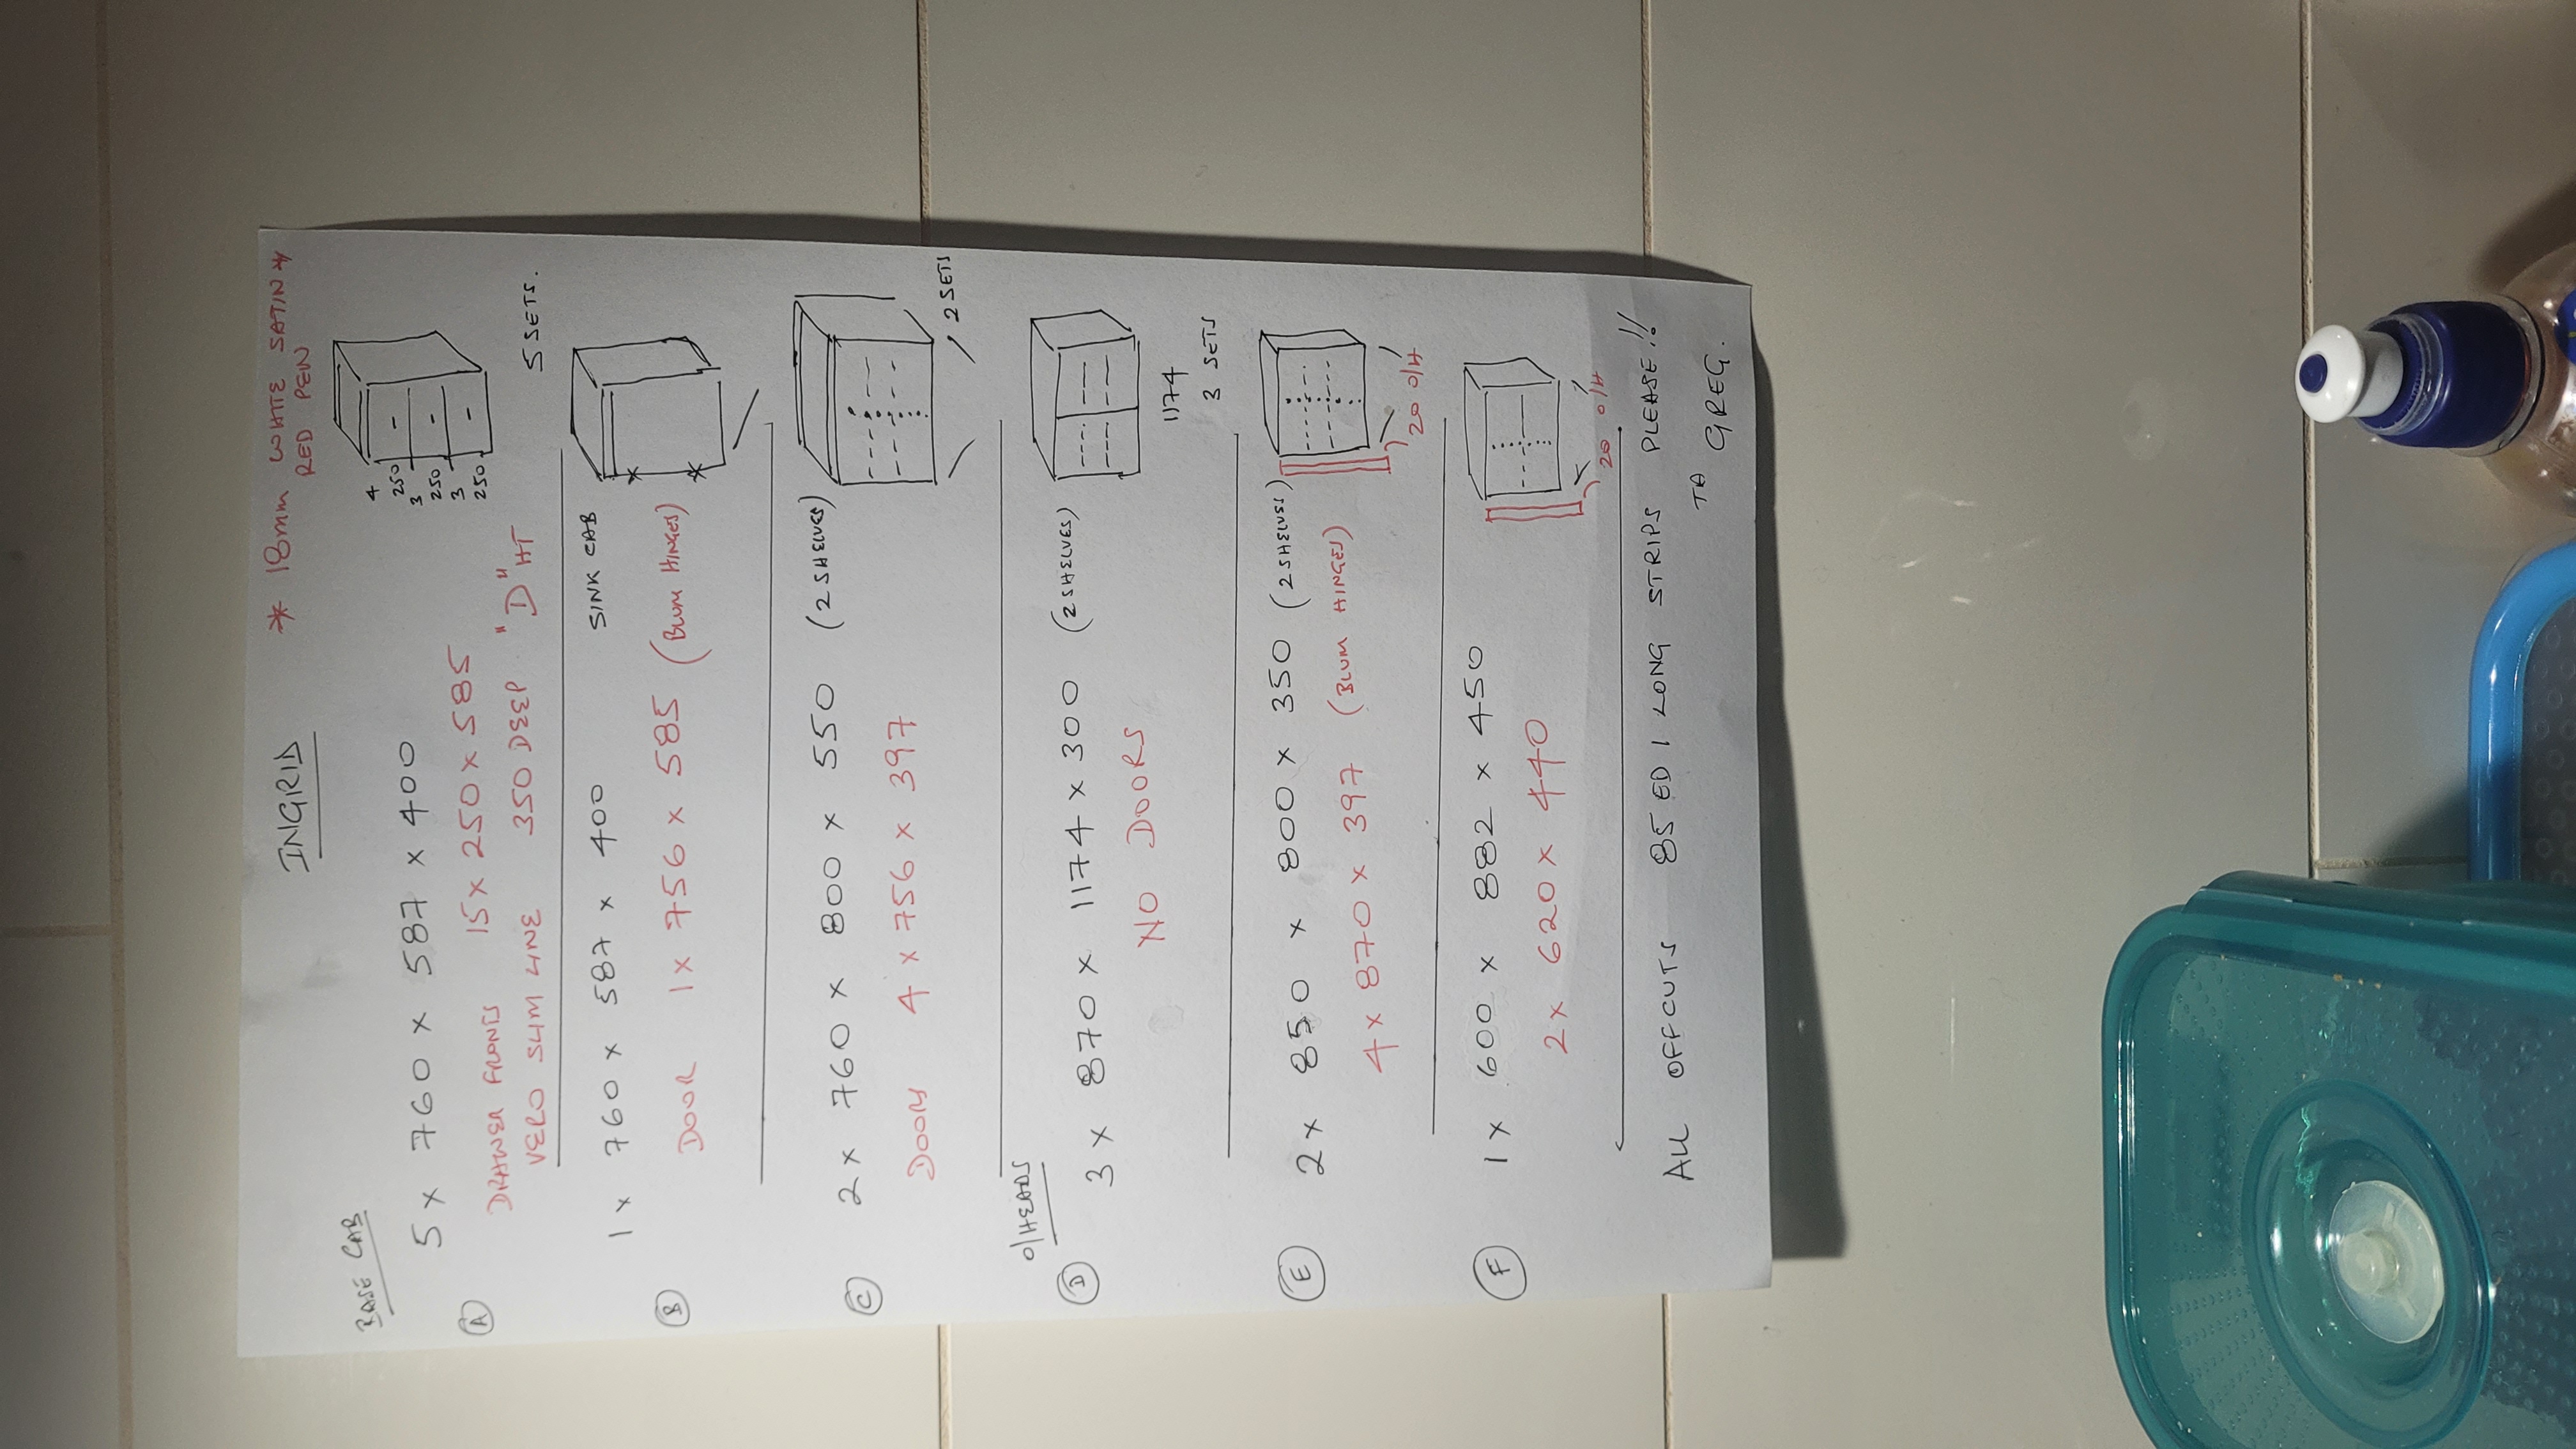 INGRID
* 18mm WHITE SATIN *
RED PEN
BASE CAB
A
5 x 760 x 587 x 400
4
250
3
250
3
250
DRAWER FRONTS 15 x 250 x 585
VERO SLIM LINE 350 DEEP "D" HT
5 SETS.
B
1 x 760 x 587 x 400 SINK CAB
DOOR 1 x 756 x 585 (BLUM HINGES)
C
2 x 760 x 800 x 550 (2 SHELVES)
DOORS 4 x 756 x 397
2 SETS
O/HEADS
D
3 x 870 x 1174 x 300 (2 SHELVES)
NO DOORS
1174
3 SETS
E
2 x 850 x 800 x 350 (2 SHELVES)
4 x 870 x 397 (BLUM HINGES)
20 O/H
F
1 x 600 x 882 x 450
2 x 620 x 440
20 O/H
ALL OFFCUTS 85 ED 1 LONG STRIPS PLEASE!!
TA
GREG.